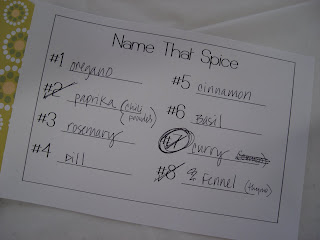 Name That Spice
#1 oregano
#2 paprika (chili powder)
#3 rosemary
#4 dill
#5 cinnamon
#6 Basil
#7 curry
#8 & Fennel (thyme)